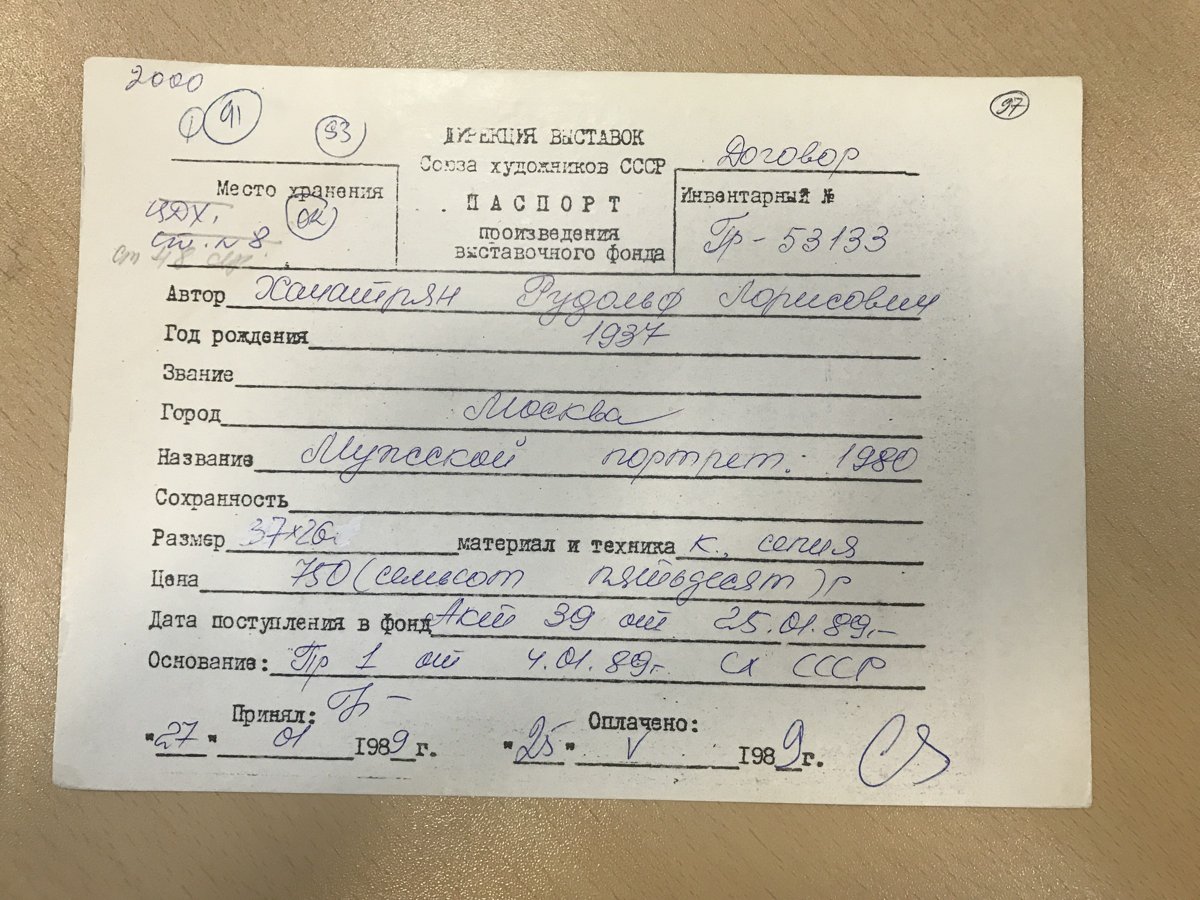 2000
91
93
97
ДИРЕКЦИЯ ВЫСТАВОК
Союза художников СССР
Договор
Место хранения
ЦДХ.
ст. №8
ОК
ПАСПОРТ
произведения
выставочного фонда
Инвентарный №
Гр - 53133
Автор Хачатрян Рудольф Лорисович
Год рождения 1937
Звание
Город Москва
Название Мужской портрет. 1980
Сохранность
Размер 37×26 материал и техника к., сепия
Цена 750 (семьсот пятьдесят) р
Дата поступления в фонд Акт 39 от 25.01.89.-
Основание: Пр 1 от 4.01.89г. СХ СССР
Принял:
Оплачено:
"27" 01 1989 г.
"25" V 1989 г.